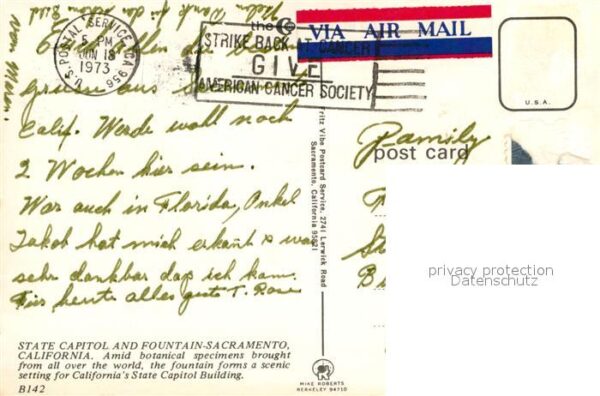 U.S. POSTAL SERVICE, CA 956
5 PM
JUN 18
1973
the
STRIKE BACK AT CANCER
GIVE
AMERICAN CANCER SOCIETY
VIA AIR MAIL
U.S.A.
Vielen Dank für den schönen
von
Euch allen die
grüsse aus
Calif. Werde wohl noch
2 Wochen hier sein.
War auch in Florida, Onkel
Jakob hat mich erkant & war
sehr dankbar dass ich kam.
Für heute alles gute T. Rose
Family
post card
Fritz Vibe Postcard Service, 2741 Larwick Road
Sacramento, California 95821
privacy protection
Datenschutz
STATE CAPITOL AND FOUNTAIN-SACRAMENTO,
CALIFORNIA. Amid botanical specimens brought
from all over the world, the fountain forms a scenic
setting for California's State Capitol Building.
B142
MIKE ROBERTS
BERKELEY 94710